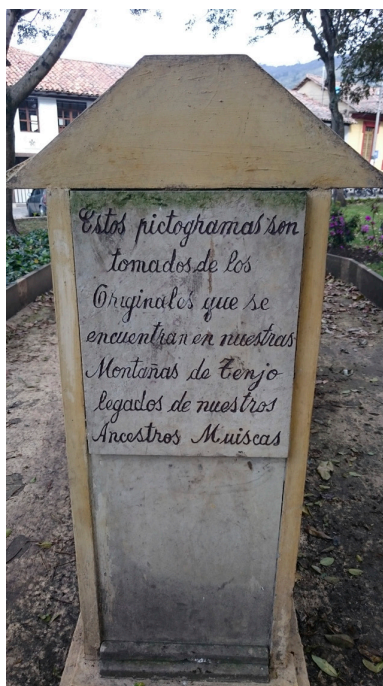 Estos pictogramas son
tomados de los
Originales que se
encuentran en nuestras
Montañas de Tenjo
legados de nuestros
Ancestros Muiscas